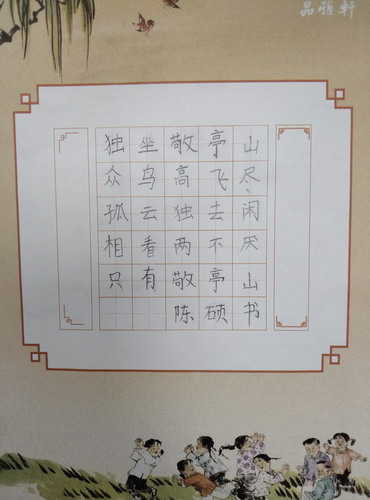 品雅轩
独坐敬亭山
众鸟高飞尽
孤云独去闲
相看两不厌
只有敬亭山
陈硕书